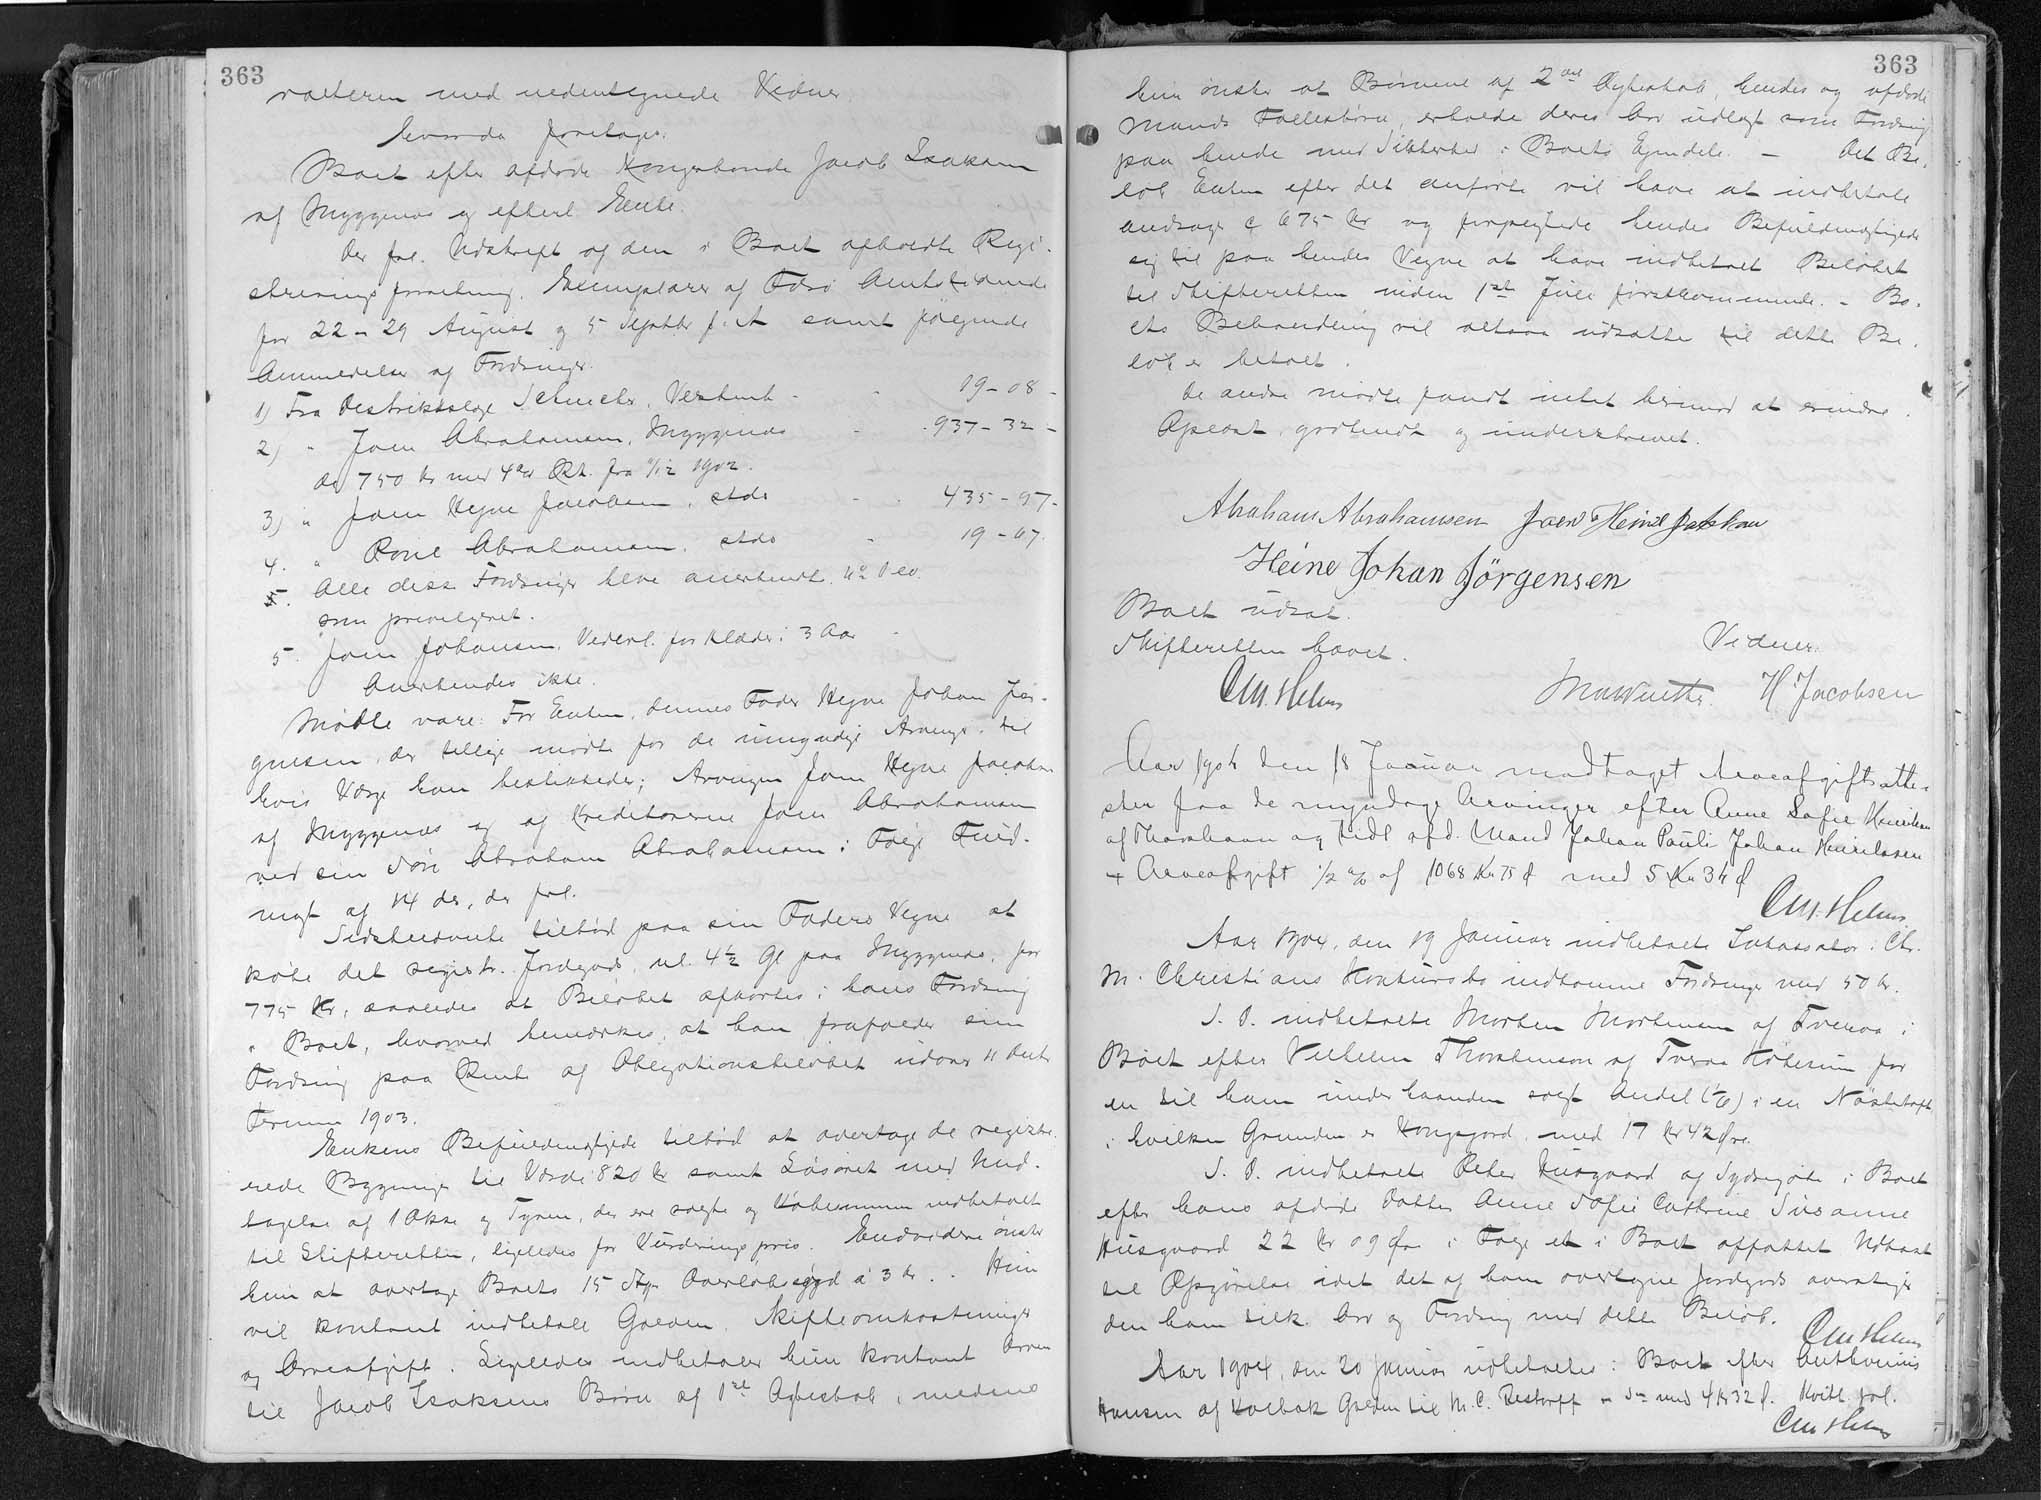 363
retteren med nedentegnede Vidner
hvorda foretoges:
Boet efter afdøde Kongsbonde Jacob Isaksen
af Myggenæs og efterl. Enke.
Der frl. Udskrift af den i Boet afholdte Regi-
streringsforretning. Exemplarer af Færø Amtstidende
for 22 - 29 August og 5 Septbr f. A. samt følgende
Anmeldelser af Fordringer.
1) Fra Distriktslæge , Vestmh - - 19-08-
2) " Joen Abrahamsen, Myggenæs - 937-32-
da 750 Kr med 4% Rt. fra 11/12 1902.
3) " Joen Heyne Jacobsen, stds - - 435-97-
4. " Poul Abrahamsen, stds - 19-67.
5. Alle disse Fordringer blev anerkendt, No 1 ev.
som privilegeret.
5. Joen Johansen, Vederl. for Klæder i 3 Aar -
Anerkendes ikke.
Mødte vare: For Enken, dennes Fader Heyne Johan Jør-
gensen, der tillige mødte for de umyndige Arvinger, til
hvis Værge han beskikkedes; Arvingen Joen Heyne Jacobsen
af Myggenæs og af Kreditorerne Joen Abrahamsen
ved sin Søn Abraham Abrahamsen i Følge Fuld-
magt af 14 ds, der frl.
Sidstnævnte tilbød paa sin Faders Vegne at
købe det registr. Jordgods, nl. 4½ Gl paa Myggenæs, for
775 Kr, saaledes at Beløbet afkortes i hans Fordring
i Boet, hvorved bemærkes, at han frafalder sin
Fordring paa Rente af Obligationsbeløbet udover 11 Decbr
Termin 1903.
Enkens Befuldmægtigede tilbød at overtage de registre-
rede Bygninger til Værdi 820 Kr samt Løsøret med Und-
tagelse af 1 Okse og Tyren, der ere solgte og Købesummen indbetalt
til Skifteretten, ligeledes for Vurderingspris. Endvidere ønsker
hun at overtage Boets 15 Stk. Overløbsgjød à 3 Kr. . Hun
vil kontant indbetale Gælden, Skifteomkostninger
og Arveafgift. Ligeledes indbetaler hun kontant Arven
til Jacob Isaksens Børn af 1st Ægteskab, medens
363
hun ønsker at Børnene af 2det Ægteskab, hendes og afdøde
Mands Fællesbørn, erholde deres Arv udlagt som Fordring
paa hende med Sikkerhed i Boets Ejendele. - Det Be-
løb Enken efter det anførte vil have at indbetale
andrager c 675 Kr og forpligtede hendes Befuldmægtigede
sig til paa hendes Vegne at have indbetalt Beløbet
til Skifteretten inden 1ste Juli førstkommende. - Bo-
ets Behandling vil altsaa udsættes til dette Be-
løb er betalt.
De andre mødte fandt intet herimod at erindre.
Oplæst, godkendt og underskrevet.
Abraham Abrahamsen Joen Heine Jakobsen
Heine Johan Jörgensen
Boet udsat.
Skifteretten hævet. Vidner:
H. Jacobsen
Aar 1904 den 18 Januar modtaget Arveafgiftsatte-
ster fra de myndige Arvinger efter Anne Sofie Henriksen
af Thorshavn og tidl. afd. Mand Johan Pauli Johan Henriksen
+ Arveafgift ½ % af 1068 Kr 75 Ø med 5 Kr 34 Ø
Aar 1904, den 19 Januar indbetalte Inkassator i Chr.
M. Christians Konkursbo indkomne Fordringer med 50 Kr.
S. D. indbetalte Morten Mortensen af Tveraa i
Boet efter Vilhelm Thorstensen af Tveraa Købesum for
en til ham underhaanden solgt Andel (1/6) i en Nøstetoft
i hvilken Grunden er Kongsjord, med 17 Kr 42 Øre.
S. D. indbetalte Peter Husgaard af Sydregøte i Boet
efter hans afdøde Datter Anne Sofie Cathrine Susanne
Husgaard 22 Kr 09 Øre i Følge et i Boet affattet Udkast
til Opgørelse idet det af ham overtagne Jordgods overstiger
den ham tilk. Arv og Fordring med dette Beløb.
Aar 1904, den 20 Januar udbetaltes i Boet efter Anthonius
Hansen af Kolbak Gælden til M. C. Restorff & Sn med 4 Kr 32 Ø. Kvitt. frl.